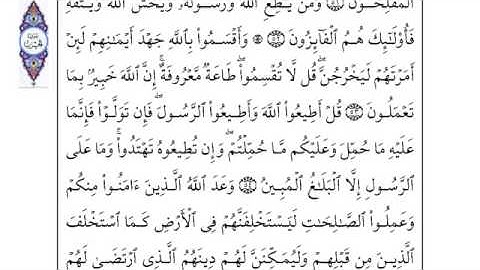 ٱلْمُفْلِحُونَ ۝٥١ وَمَن يُطِعِ ٱللَّهَ وَرَسُولَهُۥ وَيَخْشَ ٱللَّهَ وَيَتَّقْهِ
فَأُو۟لَـٰٓئِكَ هُمُ ٱلْفَآئِزُونَ ۝٥٢ ۞ وَأَقْسَمُوا۟ بِٱللَّهِ جَهْدَ أَيْمَـٰنِهِمْ لَئِنْ
أَمَرْتَهُمْ لَيَخْرُجُنَّ ۖ قُل لَّا تُقْسِمُوا۟ ۖ طَاعَةٌ مَّعْرُوفَةٌ ۚ إِنَّ ٱللَّهَ خَبِيرٌۢ بِمَا
تَعْمَلُونَ ۝٥٣ قُلْ أَطِيعُوا۟ ٱللَّهَ وَأَطِيعُوا۟ ٱلرَّسُولَ ۖ فَإِن تَوَلَّوْا۟ فَإِنَّمَا
عَلَيْهِ مَا حُمِّلَ وَعَلَيْكُم مَّا حُمِّلْتُمْ ۖ وَإِن تُطِيعُوهُ تَهْتَدُوا۟ ۚ وَمَا عَلَى
ٱلرَّسُولِ إِلَّا ٱلْبَلَـٰغُ ٱلْمُبِينُ ۝٥٤ وَعَدَ ٱللَّهُ ٱلَّذِينَ ءَامَنُوا۟ مِنكُمْ
وَعَمِلُوا۟ ٱلصَّـٰلِحَـٰتِ لَيَسْتَخْلِفَنَّهُمْ فِى ٱلْأَرْضِ كَمَا ٱسْتَخْلَفَ
ٱلَّذِينَ مِن قَبْلِهِمْ وَلَيُمَكِّنَنَّ لَهُمْ دِينَهُمُ ٱلَّذِى ٱرْتَضَىٰ لَهُمْ